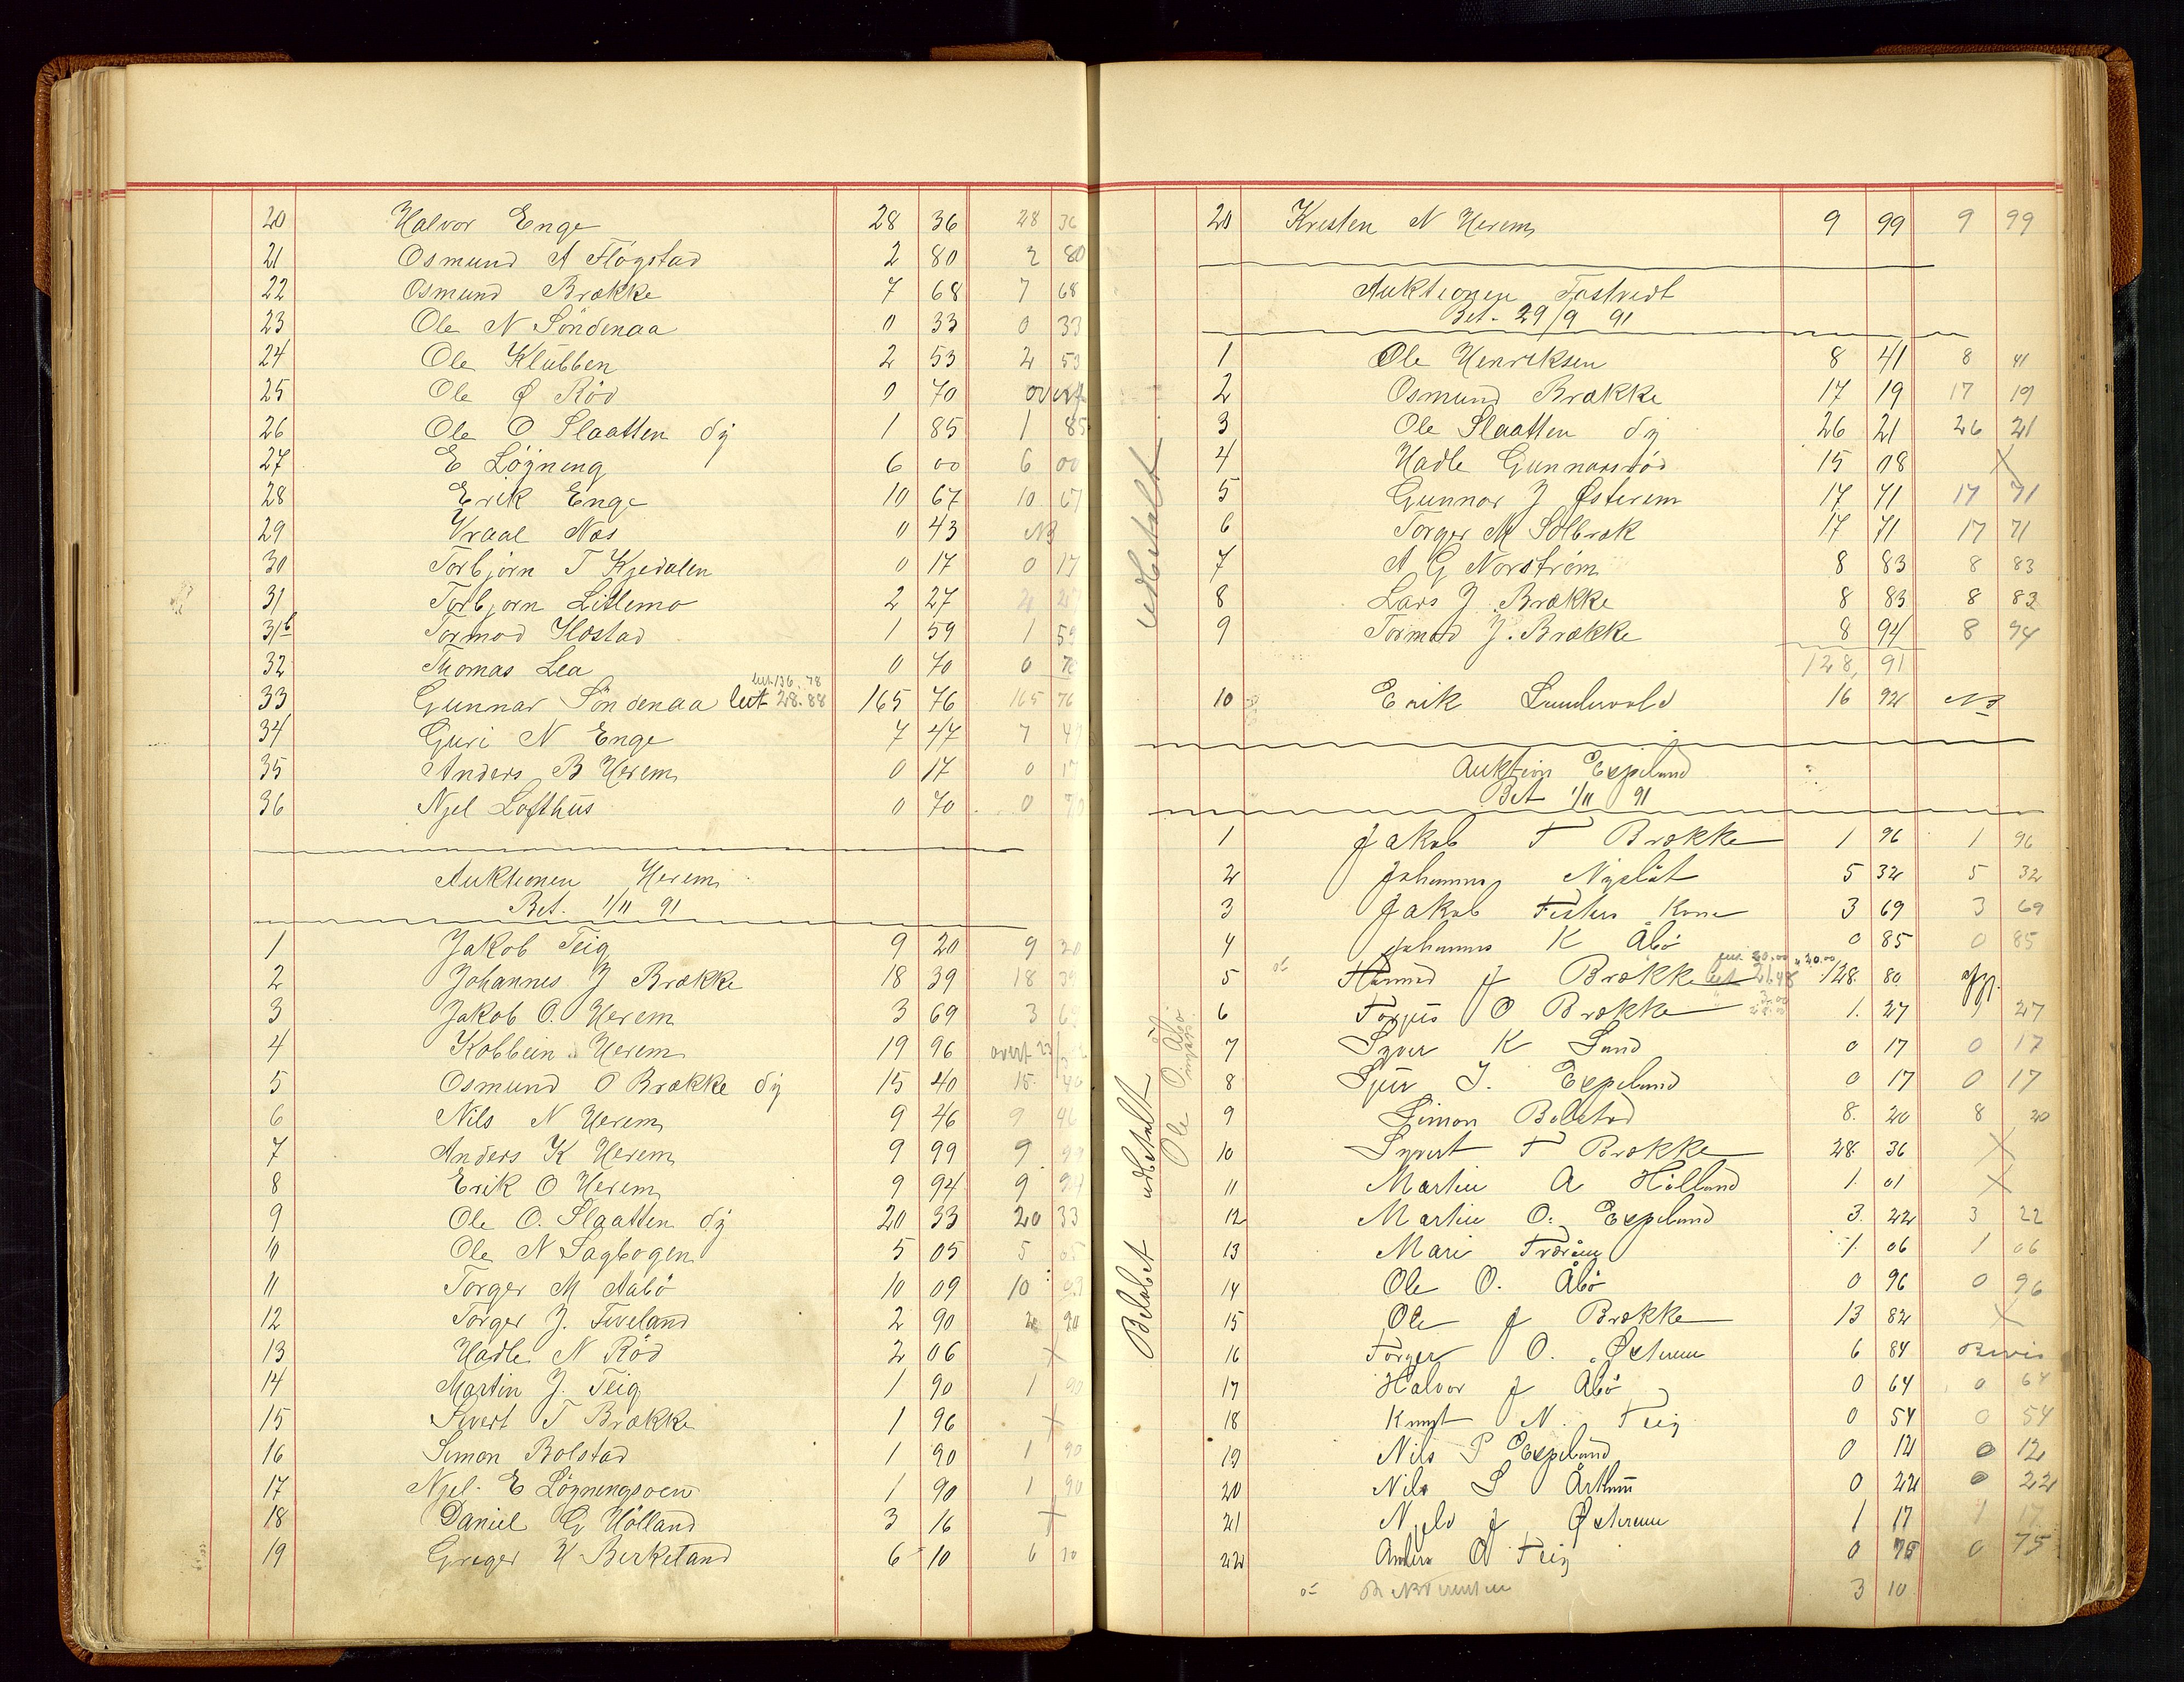 20 Halvor Enge 28 36 28 36
21 Osmund A Flögstad 2 80 2 80
22 Osmund Brække 7 68 7 68
23 Ole N Söndenaa 0 33 0 33
24 Ole Klubben 2 53 2 53
25 Ole Ø Röd 0 70 overf
26 Ole O Slaatten dy 1 85 1 85
27 E Löyning 6 00 6 00
28 Erik Enge 10 67 10 67
29 Vraal Næs 0 43 NB
30 Torbjørn T Kjedalen 0 17 0 17
31 Torbjorn Litlemo 2 27 2 27
31b Tormod Hæstad 1 59 1 59
32 Thomas Lea 0 70 0 70
33 Gunnar Söndenaa let 28.88 165 76 165 76
34 Guri N Enge 7 47 7 47
35 Anders B Herem 0 17 0 17
36 Njel Lofthus 0 70 0 70
Auktionen Herem
Bet. 1/11 91
1 Jakob Teig 9 20 9 20
2 Johannes J Brække 18 39 18 39
3 Jakob O. Herem 3 69 3 69
4 Kolbein Herem 19 96 overt
5 Osmund O Brække dy 15 40 15 40
6 Nils N Herem 9 46 9 46
7 Anders K Herem 9 99 9 99
8 Erik O Herem 9 94 9 94
9 Ole O. Slaatten dy 20 33 20 33
10 Ole N Sagbogen 5 05 5 05
11 Torger M Aabö 10 09 10 03
12 Torger J. Tveland 2 90 2 90
13 Hadle N Röd 2 06 X
14 Martin J. Teig 1 90 1 90
15 Sivert T Brække 1 96 X
16 Simon Bolstad 1 90 1 90
17 Njel. E Löyningsoen 1 90 1 90
18 Daniel G Hölland 3 16 X
19 Greger H Berkeland 6 10 6 10
20 Kristen N Herem 9 99 9 99
Auktionen Tastvedt
Bet. 29/9 91
1 Ole Henriksen 8 41 8 41
2 Osmund Brække 17 19 17 19
3 Ole Slaatten dy 26 21 26 21
4 Hadle Gunnarsröd 15 08 X
5 Gunnar J Østerem 17 71 17 71
6 Torger M Solbræk 17 71 17 71
7 A G Norström 8 83 8 83
8 Lars J Brække 8 83 8 83
9 Tormod J. Brække 8 94 8 94
128, 91
10 Erik Sundvold 16 92 NB
udbetalt
Auktion Espeland
Bet 1/11 91
1 Jakob T Brække 1 96 1 96
2 Johannes 5 32 5 32
3 Jakob Kone 3 69 3 69
4 Johannes K Åbö 0 85 0 85
5 J Brække 128 80
6 Torjus O Brække 1. 27 27
7 Syver K Sand 0 17 0 17
8 J. Espeland 0 17 0 17
9 Simon Bolstad 8. 20 8 20
10 Syvert T Brække 28. 36 X
11 Martin A Hölland 1. 01 X
12 Martin O. Espeland 3. 22 3 22
13 Mari 1. 06 1 06
14 Ole O. Åbö 0 96 0 96
15 Ole J Brække 13 82 X
16 Torger O. Østerem 6 84 Bevis
17 Halvor J Åbö 0 64 0 64
18 Knut N. Teig 0 54 0 54
19 Nils P Espeland 0 12 0 12
20 Nils S Årthun 0 22 0 22
21 Njeld J Østerem 1 17 1 17
22 Anders A Teig 0 75 0 75
3 10
Beløbet udbetalt
Ole O Åbø